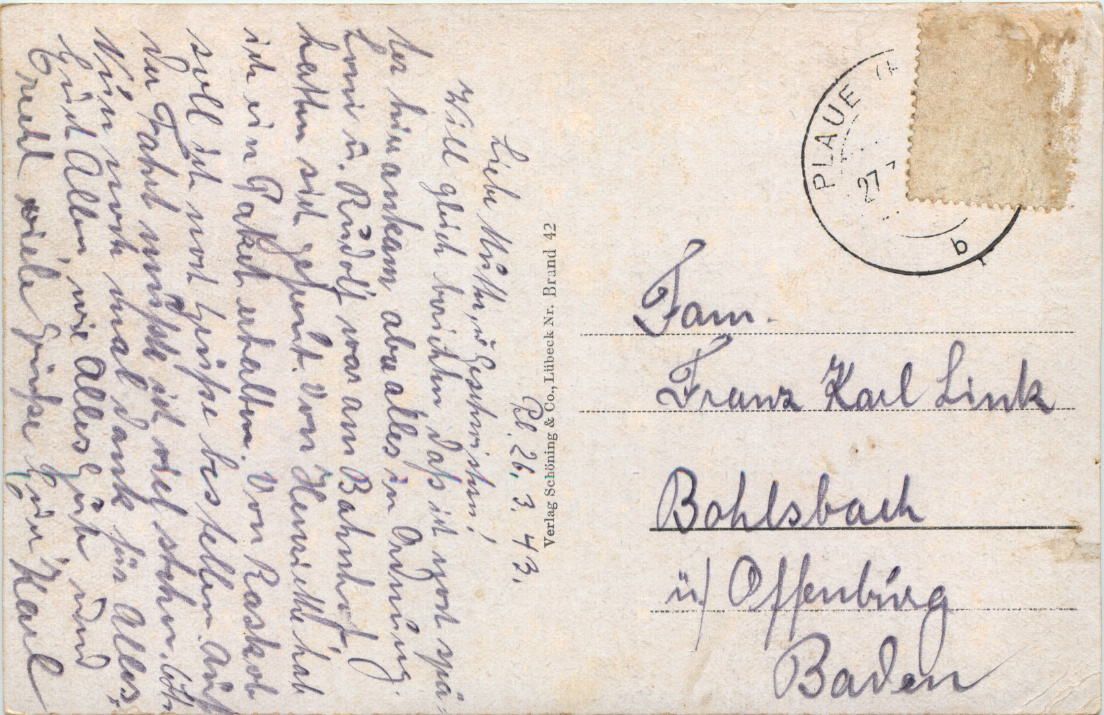 Pl. 26. 3. 43.
Liebe Mutter, u. Geschwistern!
Will gleich berichten daß ich gest spä-
ter hier ankam aber alles in Ordnung.
Loni u. Rudolf war am Bahnhof,
hatten sich gefreut. Von Henriette hab
ich ein Paket erhalten. Von Raskob
soll ich noch Grüße bestellen. Auf
der Fahrt mußte ich viel stehn.
Nun noch mal Dank für Alles,
Euch Allen wie Alles Gute und
Recht viele Grüße Euer Karl
Verlag Schöning & Co., Lübeck Nr. Brand 42
PLAUE (H
27
b
Fam.
Franz Karl Link
Bohlsbach
ü/ Offenburg
Baden